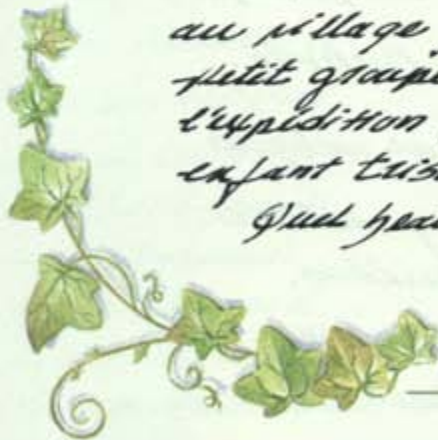 au village
petit groupe
l'expédition
enfant tris
Quel beau